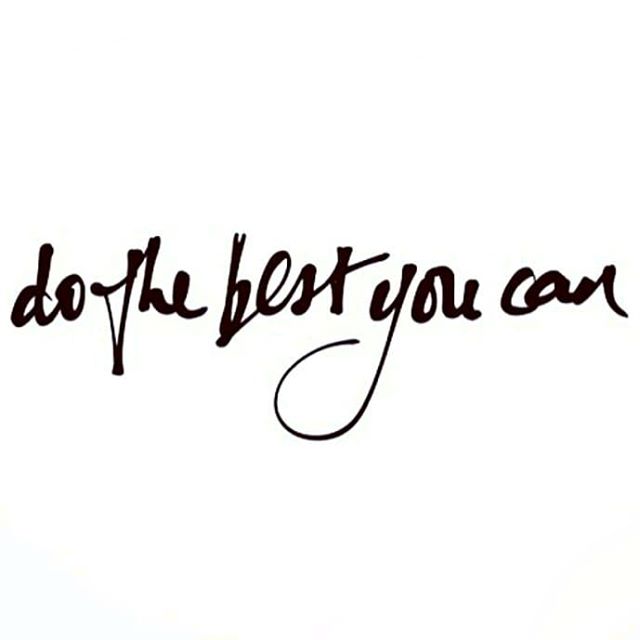 do the best you can